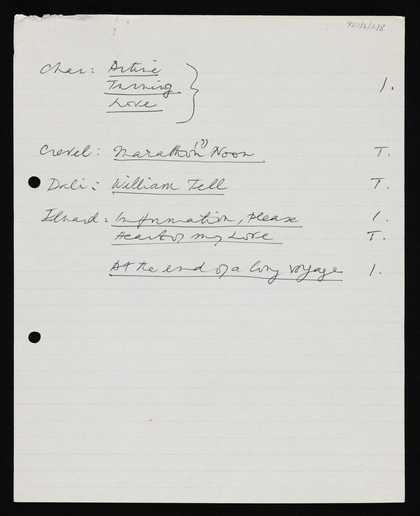 Char: Artine
Turning
Love
1.
Crevel: Marathon (?) Noon T.
Dali: William Tell T.
Eluard: Information, Please 1.
Heart of my Love T.
At the end of a long voyage 1.